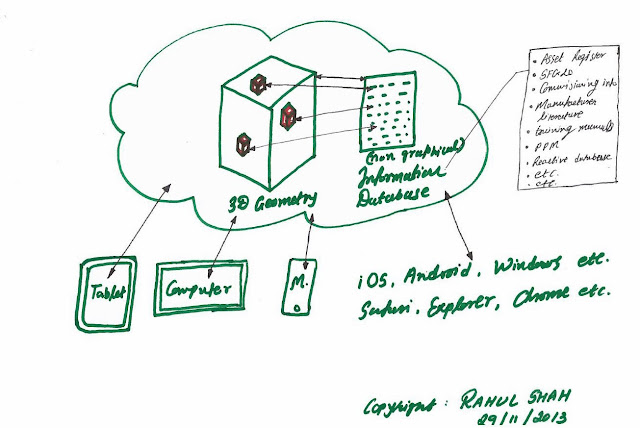 3D Geometry
(non graphical)
Information
Database
• Asset Register
• SFG20
• Commissioning info
• Manufacturer
literature
• training manuals
• PPM
• Reactive database
• etc.
• etc.
Tablet
Computer
M.
iOS, Android, Windows etc.
Safari, Explorer, Chrome etc.
Copyright : RAHUL SHAH
29/11/2013